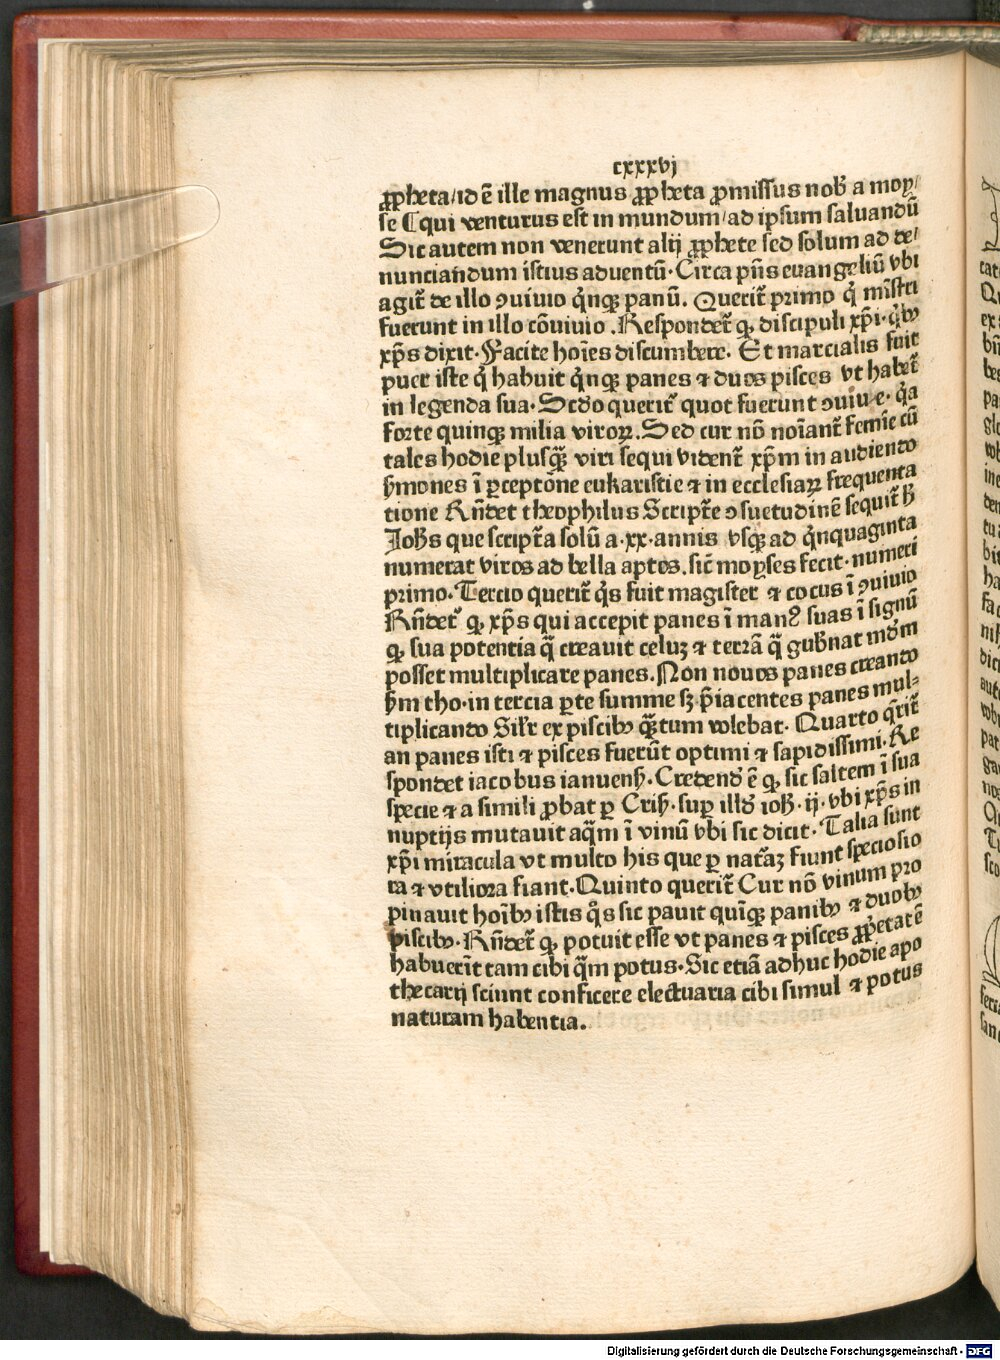 cxxxvj
ꝓpheta/id ē ille magnus ꝓpheta ꝓmissus nob̄ a moy/
se Cqui venturus est in mundum/ad ipsum saluandū
Sic autem non venerunt alij ꝓphete sed solum ad de/
nunciandum istius aduentū. Circa pn̄s euangeliū vbi
agit᷑ de illo ꝯuiuio q̇nqꝫ panū. Querit᷑ primo q̇ mīstri
fuerunt in illo cōuiuio. Respondet᷑ ꝙ discipuli xp̄i. q̇bꝰ
xp̄s dixit. Facite hoīes discumbere. Et marcialis fuit
puer iste q̇ habuit q̇nqꝫ panes ⁊ duos pisces vt habet᷑
in legenda sua. Scd̄o querit᷑ quot fuerunt ꝯuiue. q̇a
forte quinqꝫ milia viroꝝ. Sed cur nō noīant᷑ femīe cū
tales hodie plusqꝫ̄ viri sequi vident᷑ xp̄m in audiendo
ẜmones ī ꝑceptōne eukaristie ⁊ in ecclesiaꝝ frequenta
tione Rn̄det theophilus Script᷑e ꝯsuetudinē sequit᷑ ẜ
Joh̄s que script᷑a solū a .xx. annis vsqꝫ ad q̇nquaginta
numerat viros ad bella aptos. sic̄ moyses fecit. numeri
primo. Tercio querit᷑ q̇s fuit magister ⁊ cocus ī ꝯuiuio
Rn̄det᷑ ꝙ xp̄s qui accepit panes ī manꝰ suas ī signū
ꝙ sua potentia q̄ creauit celuꝫ ⁊ terrā q̄ gub̄nat mūdm
posset multiplicare panes. Non nouos panes creando
ẜm tho. in tercia ꝑte summe sꝫ p̄iacentes panes mul⸗
tiplicando Sil̄r ex piscibꝰ qꝫ̄tum volebat. Quarto q̄rit᷑
an panes isti ⁊ pisces fuerūt optimi ⁊ sapidissimi. Re
spondet iacobus ianuens̄. Credend̄ ē ꝙ sic saltem ī sua
specie ⁊ a simili ꝓbat ꝑ Cris̄. suꝑ illd̄ ioh̄. ij. vbi xp̄s in
nuptijs mutauit aq̄m ī vinū vbi sic dicit. Talia sunt
xp̄i miracula vt multo his que ꝑ nat᷑aꝫ fiunt speciosio
ra ⁊ vtiliora fiant. Quinto querit᷑ Cur nō vinum pro
pinauit hoībꝰ istis q̇s sic pauit quīqꝫ panibꝰ ⁊ duobꝰ
piscibꝰ. Rn̄det᷑ ꝙ potuit esse vt panes ⁊ pisces ꝓp̄etatē
habuerīt tam cibi q̄m potus. Sic etiā adhuc hodie apo
thecarij sciunt conficere electuaria cibi simul ⁊ potus
naturam habentia.
Digitalisierung gefördert durch die Deutsche Forschungsgemeinschaft - DFG